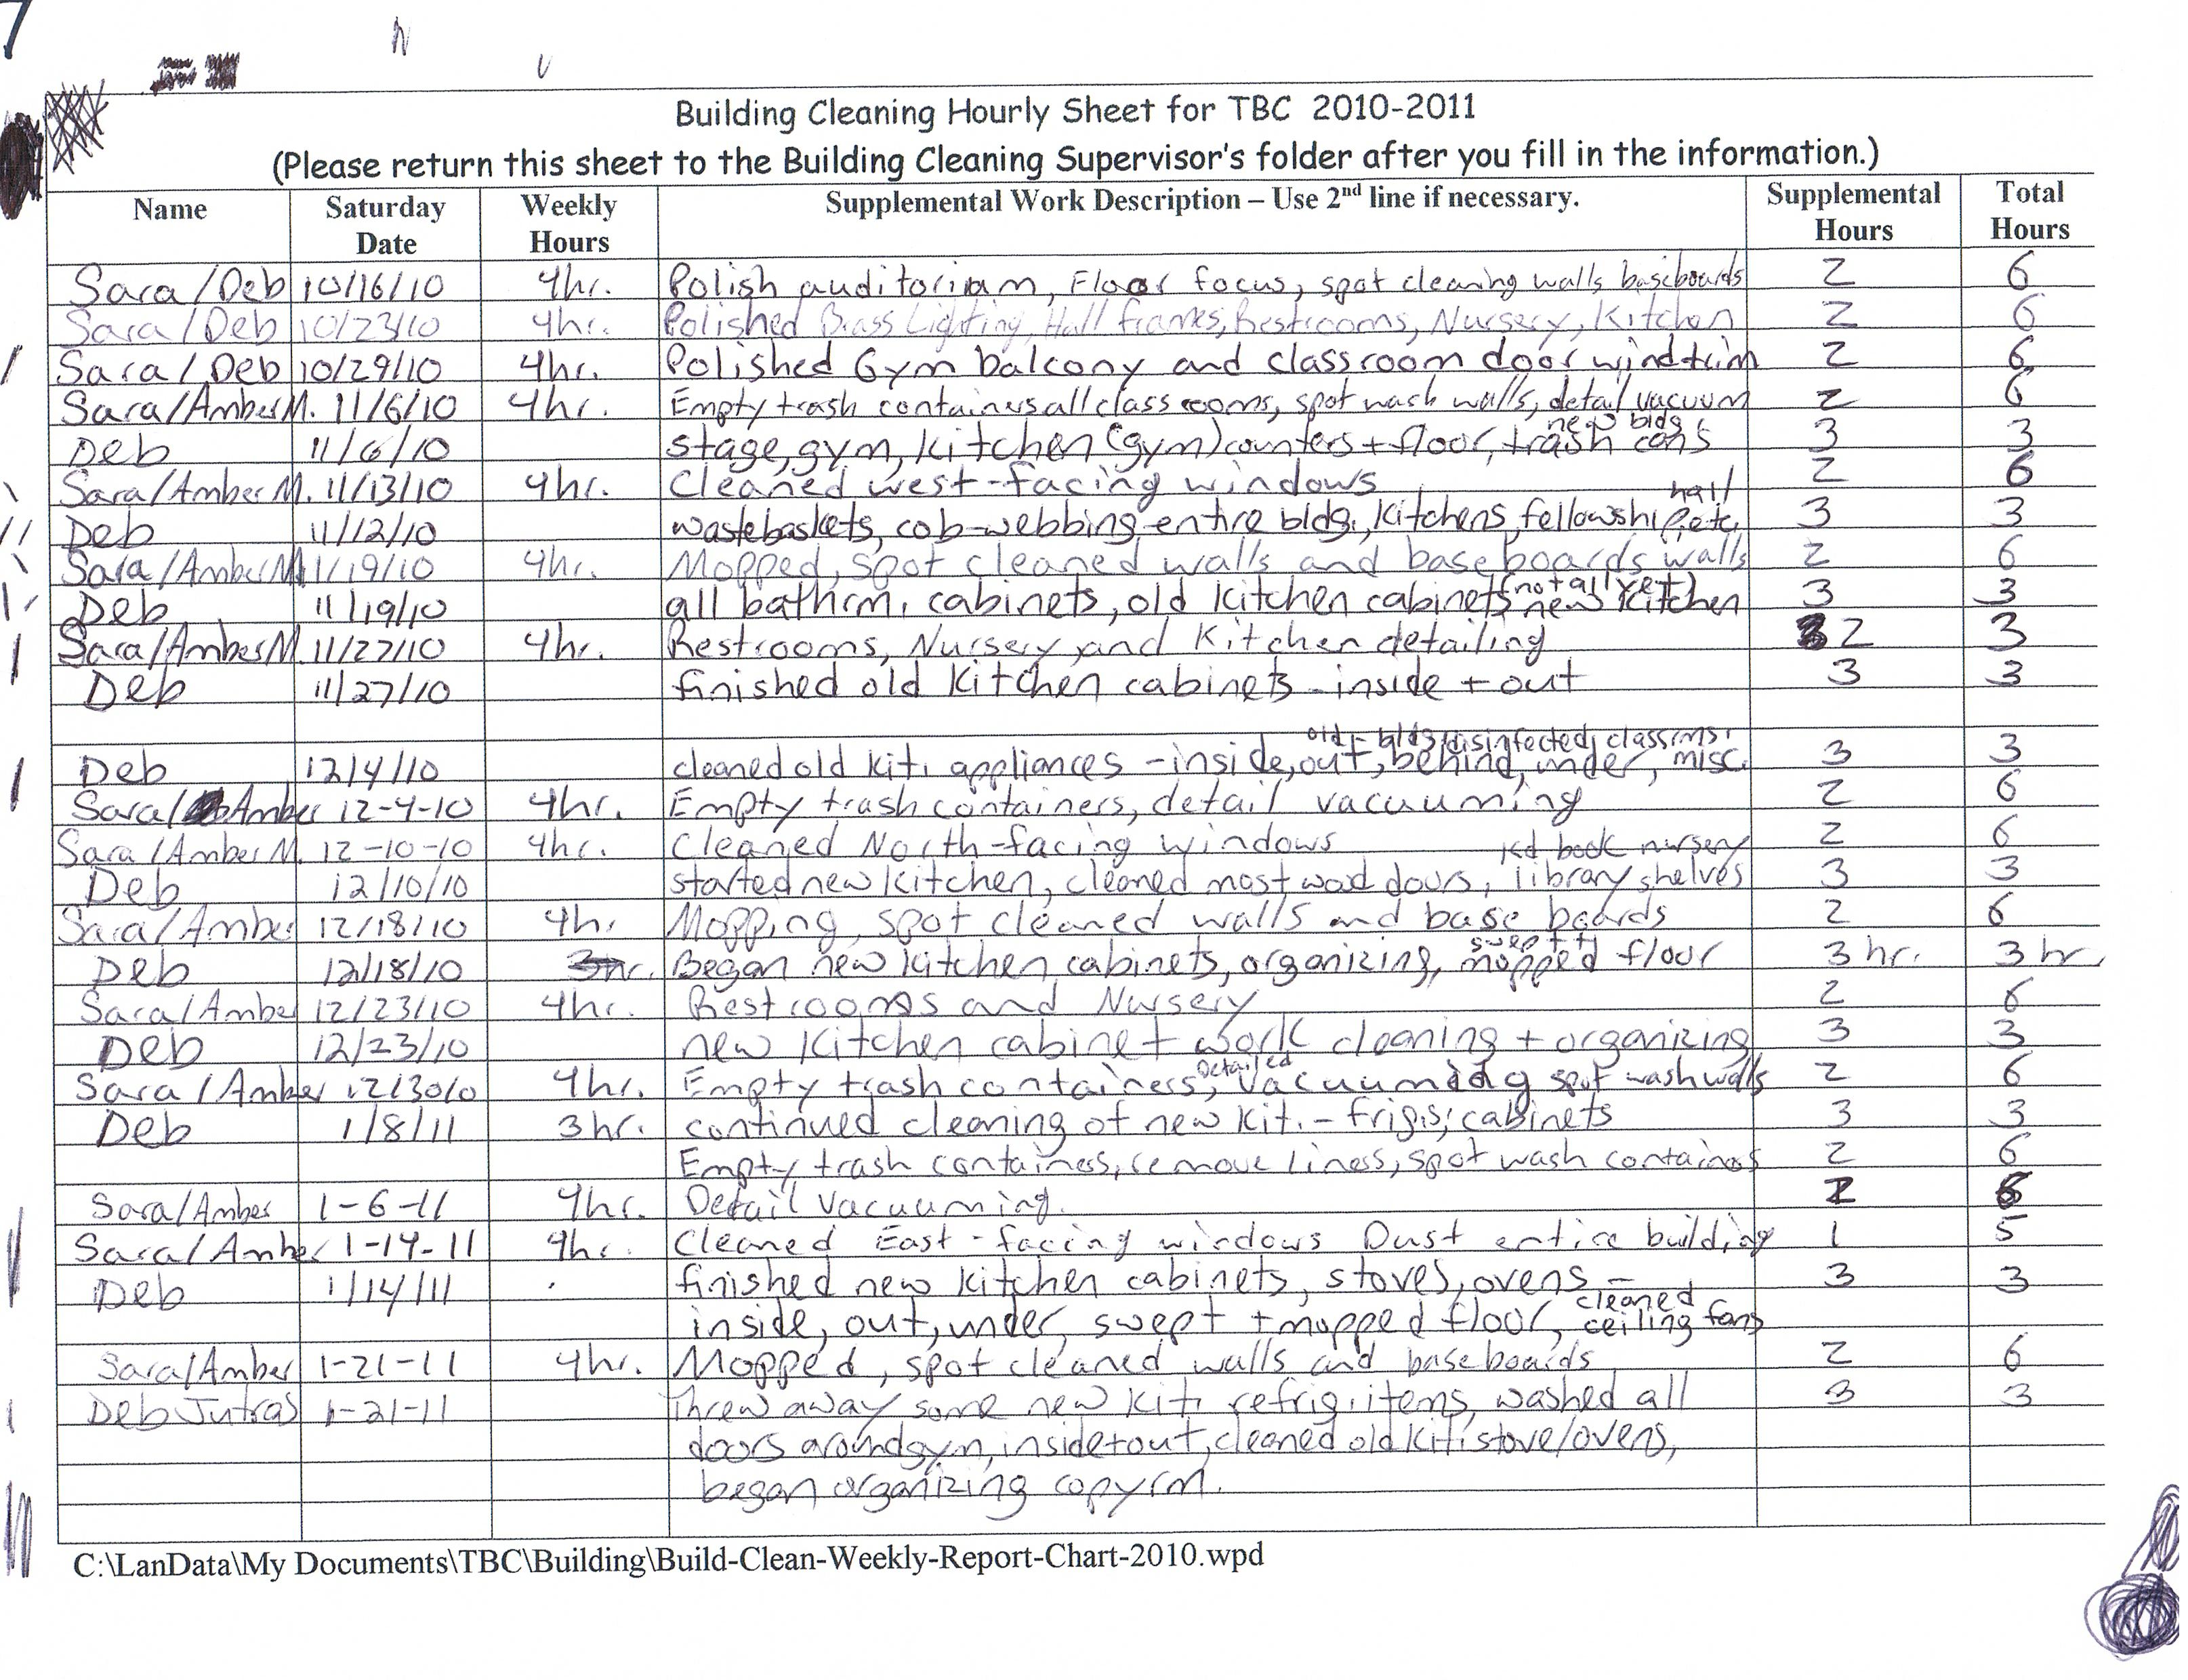 Building Cleaning Hourly Sheet for TBC 2010-2011
(Please return this sheet to the Building Cleaning Supervisor's folder after you fill in the information.)
Name Saturday Date Weekly Hours Supplemental Work Description – Use 2nd line if necessary. Supplemental Hours Total Hours
Sara/Deb 10/16/10 4hr. Polish auditoriam, Floor focus, spot cleaning walls baseboards 2 6
Sara/Deb 10/23/10 4hr. Polished Brass Lighting, Hall frames, Restrooms, Nursery, Kitchen 2 6
Sara/Deb 10/29/10 4hr. Polished Gym balcony and classroom door wind trim 2 6
Sara/Amber M. 11/6/10 4hr. Empty trash containers all class rooms, spot wash walls, detail vacuum 2 6
Deb 11/6/10 stage, gym, kitchen (gym) counters + floor, trash cans new bldg 3 3
Sara/Amber M. 11/13/10 4hr. Cleaned west-facing windows 2 6
Deb 11/12/10 wastebaskets, cob-webbing entire bldg., kitchens, fellowship hall, etc. 3 3
Sara/Amber M 11/19/10 4hr. Mopped, spot cleaned walls and baseboards walls 2 6
Deb 11/19/10 all bathrm. cabinets, old kitchen cabinets (not all yet) new kitchen 3 3
Sara/Amber M. 11/27/10 4hr. Restrooms, Nursery, and Kitchen detailing 2 3
Deb 11/27/10 finished old kitchen cabinets - inside + out 3 3
old - bldg disinfected classrms.
Deb 12/4/10 cleaned old kit. appliances - inside, out, behind, under, misc. 3 3
Sara/Amber 12-4-10 4hr. Empty trash containers, detail vacuuming 2 6
Sara/Amber M. 12-10-10 4hr. Cleaned North-facing windows 2 6
Deb 12/10/10 started new kitchen, cleaned most wood doors, library shelves book nursery 3 3
Sara/Amber 12/18/10 4hr Mopping, spot cleaned walls and base boards 2 6
Deb 12/18/10 3hr. Began new kitchen cabinets, organizing, swept + mopped floor 3 hr. 3 hr.
Sara/Amber 12/23/10 4hr. Restrooms and Nursery 2 6
Deb 12/23/10 new kitchen cabinet work cleaning + organizing 3 3
Sara/Amber 12/30/0 4hr. Empty trash containers, Detailed vacuuming spot wash walls 2 6
Deb 1/8/11 3hr. continued cleaning of new kit. - frigs; cabinets 3 3
Empty trash containers, remove liners, spot wash containers 2 6
Sara/Amber 1-6-11 4hr. Detail Vacuuming.
Sara/Amber 1-14-11 4hr. Cleaned East-facing windows Dust entire building 1 5
Deb 1/14/11 finished new kitchen cabinets, stoves, ovens - 3 3
inside, out, under, swept + mopped floor, cleaned ceiling fans
Sara/Amber 1-21-11 4hr. Mopped, spot cleaned walls and baseboards 2 6
Deb Jutras 1-21-11 Threw away some new kit. refrig. items, washed all 3 3
doors around gym, inside + out, cleaned old kit. stove/ovens,
began organizing copy rm.
C:\LanData\My Documents\TBC\Building\Build-Clean-Weekly-Report-Chart-2010.wpd